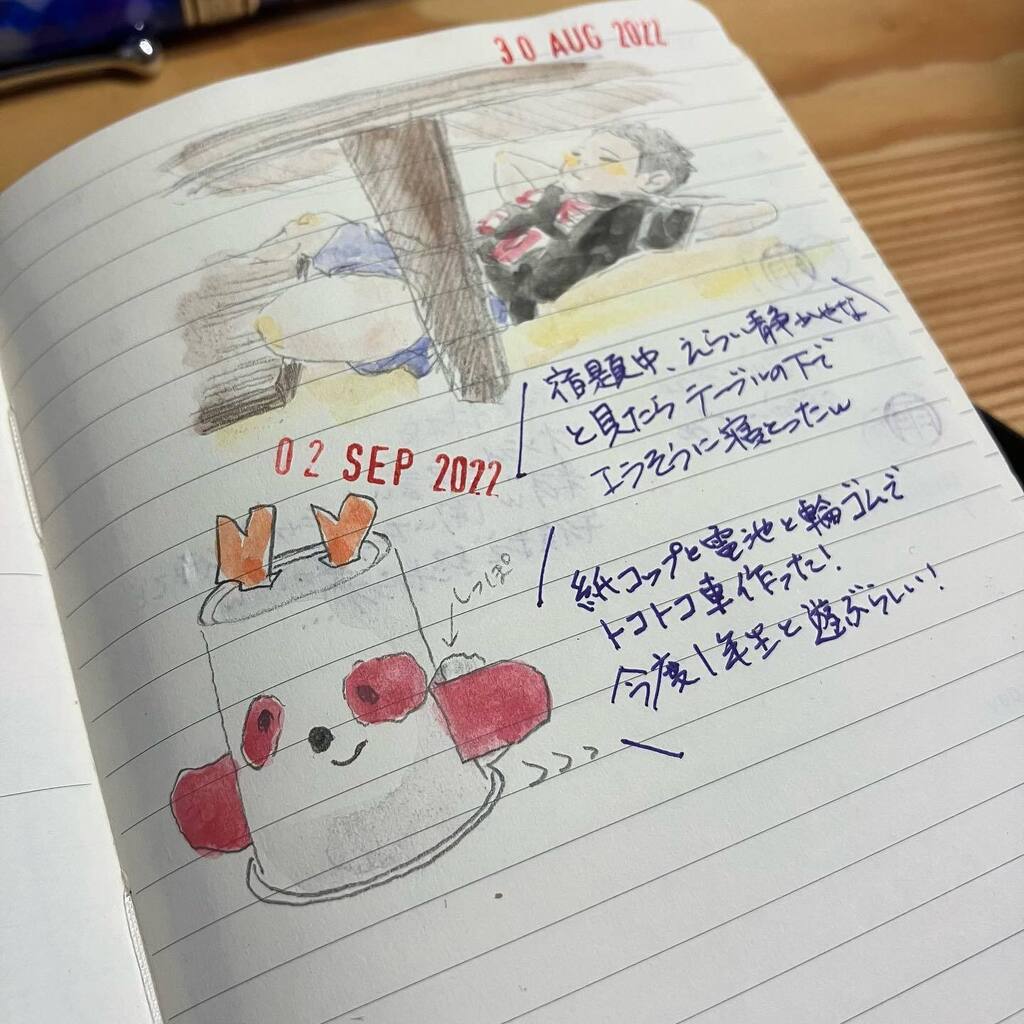 30 AUG 2022
宿題中、えらい静かやな
と見たら テーブルの下で
エラそうに寝とったw
02 SEP 2022
しっぽ
紙コップと電池と輪ゴムで
トコトコ車作った!
今度1年生と遊ぶらしい!